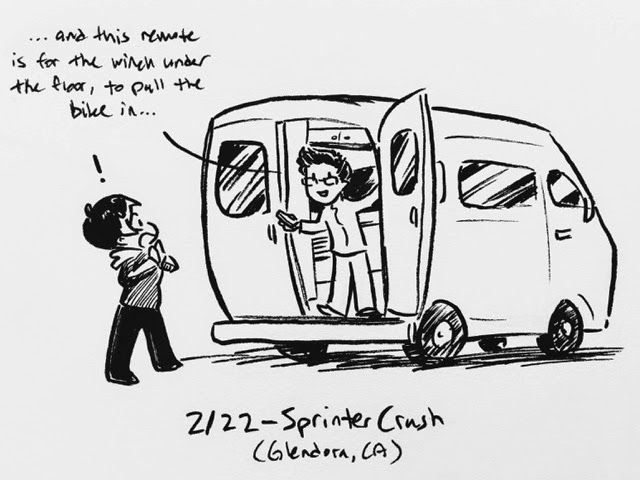 ... and this remote
is for the winch under
the floor, to pull the
bike in...
!
2/22 - Sprinter Crush
(Glendora, CA)